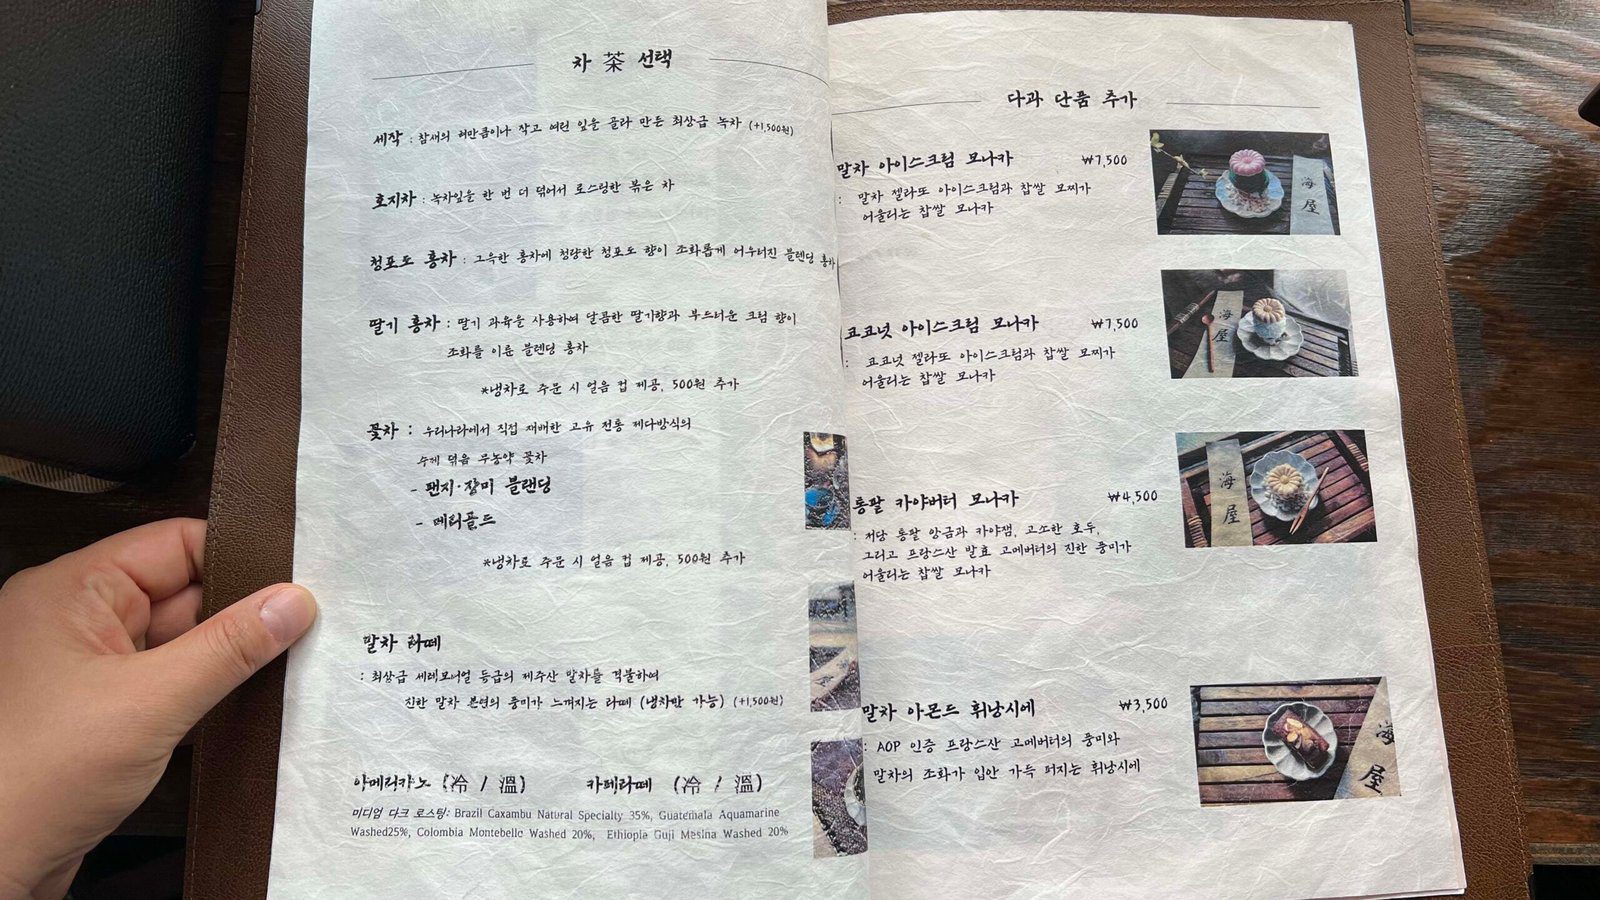 차 茶 선택
세작 : 참새의 혀만큼이나 작고 여린 잎을 골라 만든 최상급 녹차 (+1,500원)
호지차 : 녹차잎을 한 번 더 덖어서 로스팅한 볶은 차
청포도 홍차 : 그윽한 홍차에 청량한 청포도 향이 조화롭게 어우러진 블렌딩 홍차
딸기 홍차 : 딸기 과육을 사용하여 달콤한 딸기향과 부드러운 크림 향이
조화를 이룬 블렌딩 홍차
*냉차로 주문 시 얼음 컵 제공, 500원 추가
꽃차 : 우리나라에서 직접 재배한 고유 전통 제다방식의
수제 덖음 무농약 꽃차
- 팬지·장미 블랜딩
- 메리골드
*냉차로 주문 시 얼음 컵 제공, 500원 추가
말차 라떼
: 최상급 세레모니얼 등급의 제주산 말차를 격불하여
진한 말차 본연의 풍미가 느껴지는 라떼 (냉차만 가능) (+1,500원)
아메리카노 (冷 / 溫) 카페라떼 (冷 / 溫)
미디엄 다크 로스팅: Brazil Caxambu Natural Specialty 35%, Guatemala Aquamarine
Washed25%, Colombia Montebello Washed 20%, Ethiopia Guji Mesina Washed 20%
다과 단품 추가
말차 아이스크림 모나카 ₩7,500
: 말차 젤라또 아이스크림과 찹쌀 모찌가
어울리는 찹쌀 모나카
海屋
코코넛 아이스크림 모나카 ₩7,500
: 코코넛 젤라또 아이스크림과 찹쌀 모찌가
어울리는 찹쌀 모나카
海屋
통팥 카야버터 모나카 ₩4,500
: 저당 통팥 앙금과 카야잼, 고소한 호두,
그리고 프랑스산 발효 고메버터의 진한 풍미가
어울리는 찹쌀 모나카
海屋
말차 아몬드 휘낭시에 ₩3,500
: AOP 인증 프랑스산 고메버터의 풍미와
말차의 조화가 입안 가득 퍼지는 휘낭시에
海屋